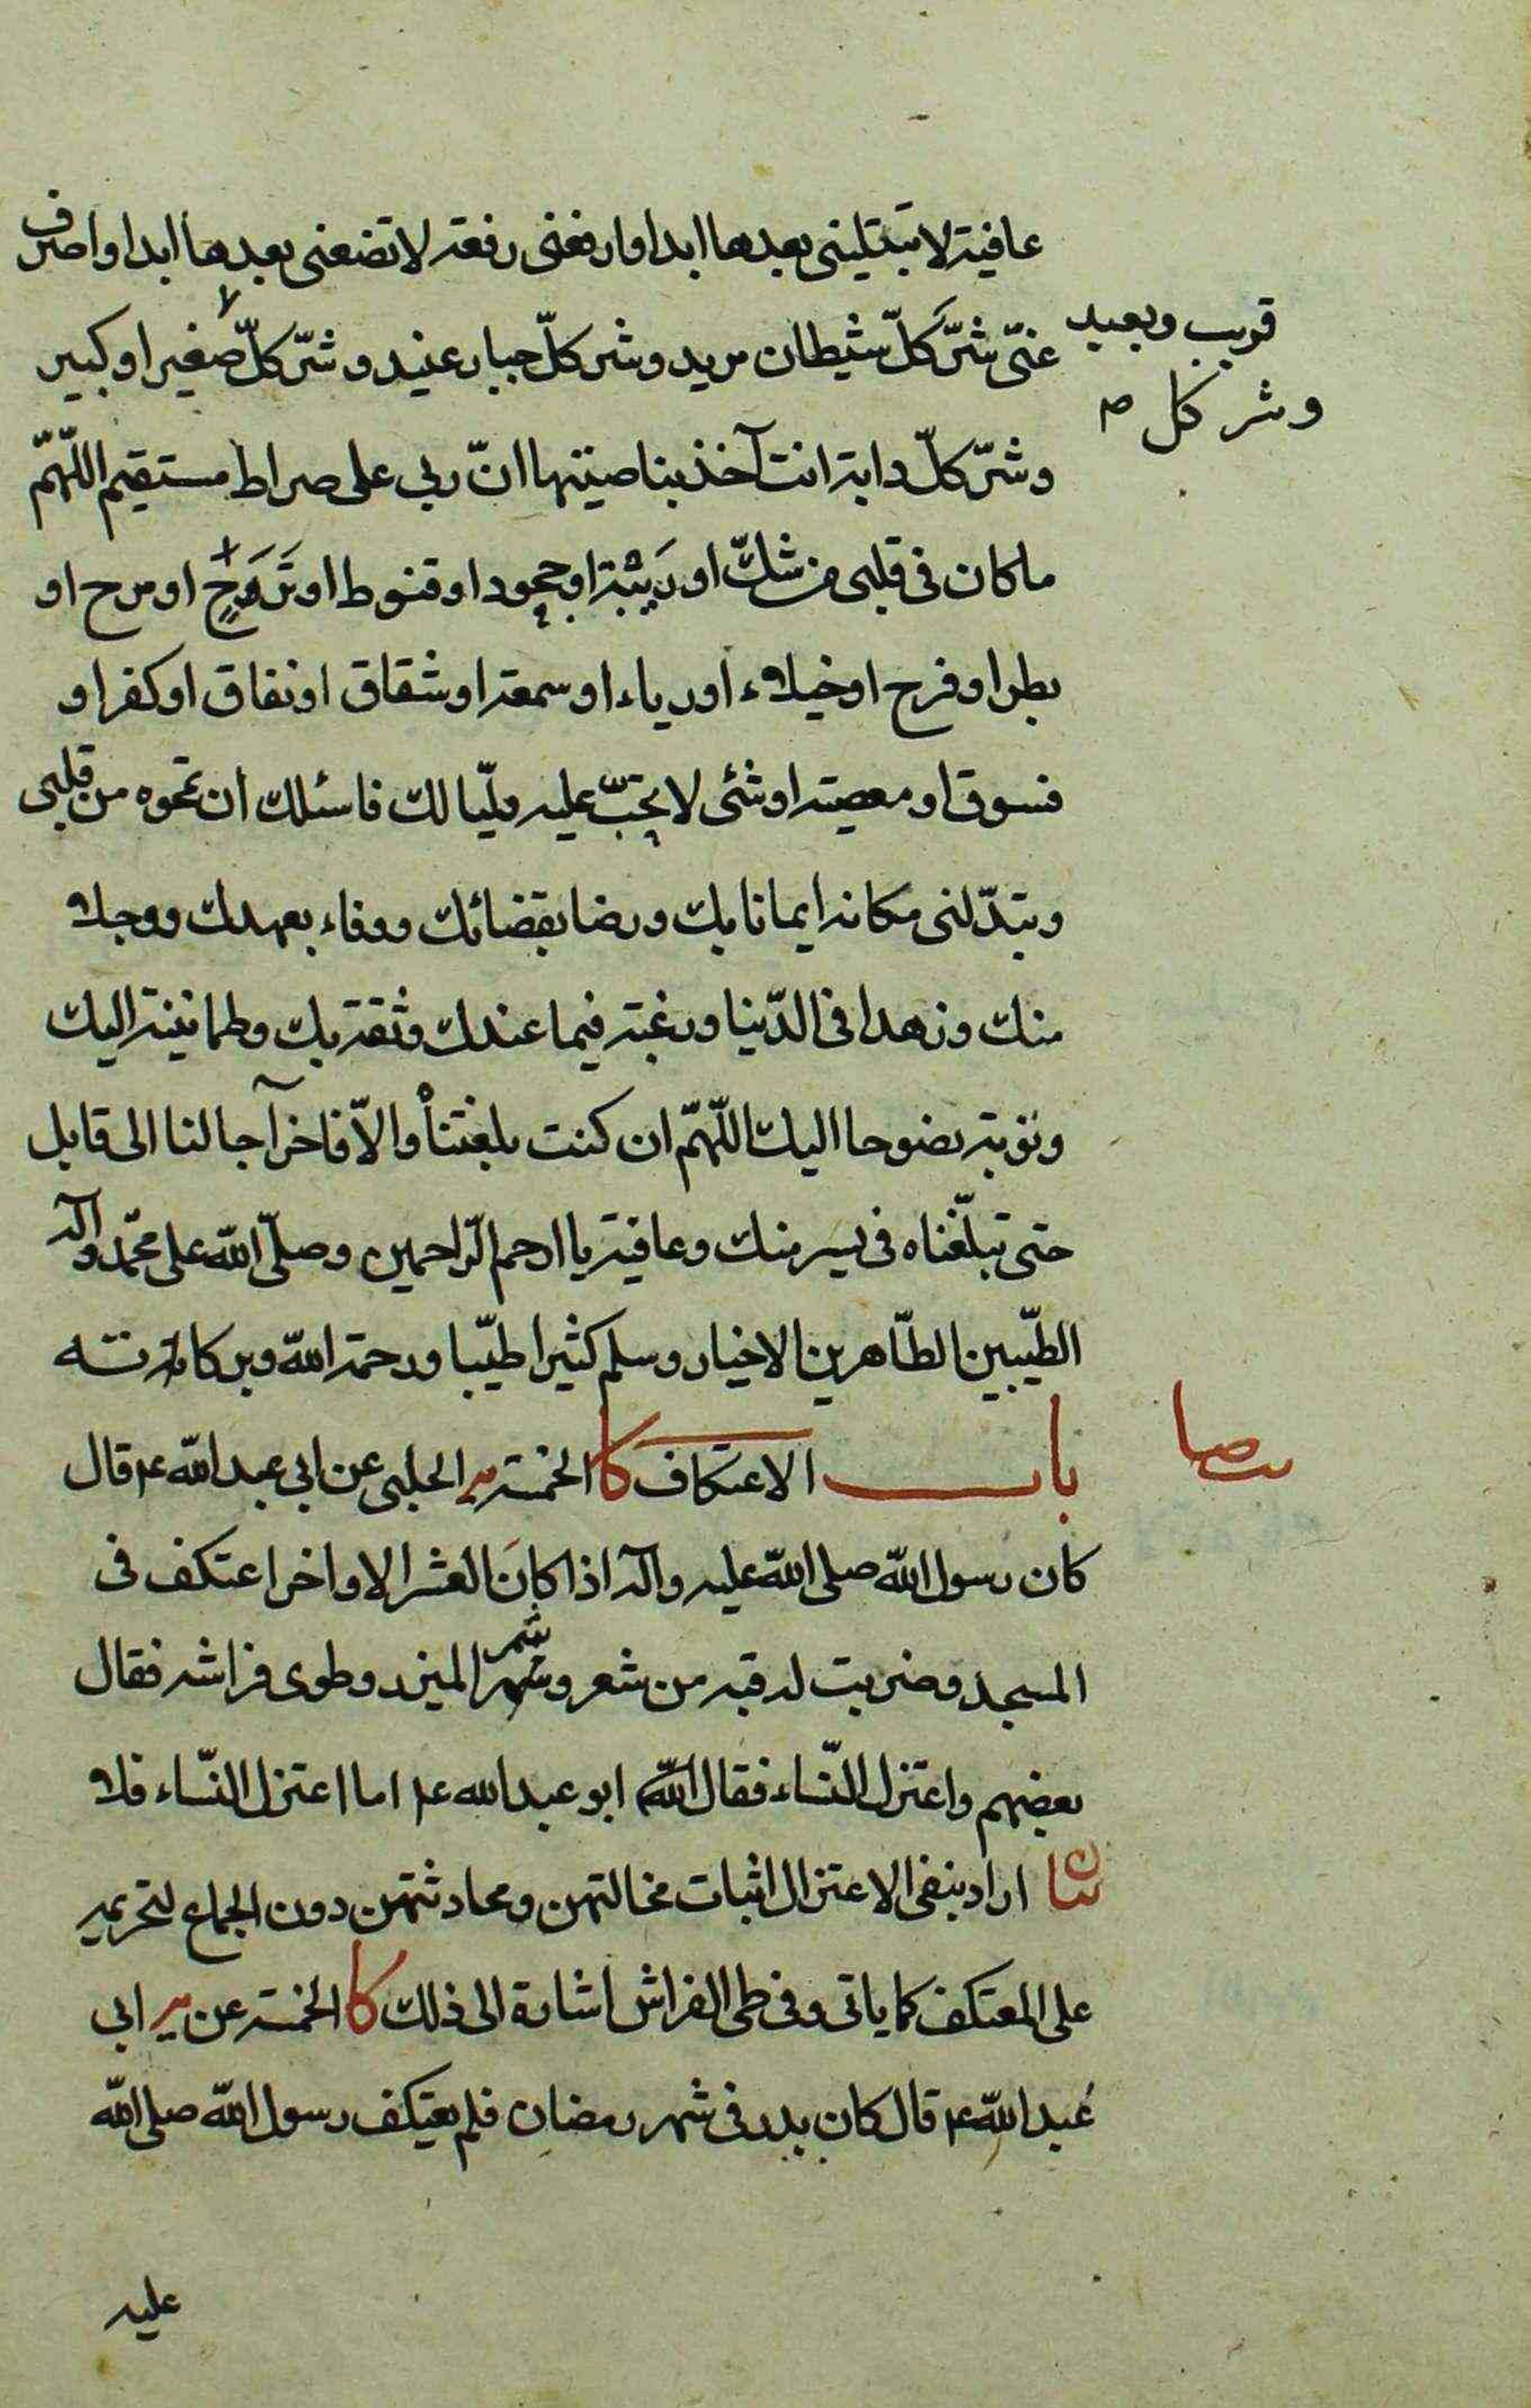 عافية لا تبتليني بعدها ابدا وارفعني رفعة لا تضعني بعدها ابدا واصرف
عنّي شرّ كلّ شيطان مريد وشر كلّ جبار عنيد وشرّ كلّ صغير او كبير
قريب وبعيد
وشر كل
وشرّ كلّ دابة انت آخذ بناصيتها انّ ربي على صراط مستقيم اللّهمّ
ما كان في قلبي من شكّ او ريبة او جحود او قنوط او ترحٍ او مرح او
بطر او فرح او خيلاء او رياء او سمعة او شقاق او نفاق او كفر او
فسوق او معصية او شئ لا يحبّ عليه وليّا لك فاسئلك ان تمحوه من قلبي
وتبدّلني مكانه ايمانا بك ورضا بقضائك ووفاء بعهدك ووجلا
منك وزهدا في الدّنيا ورغبة فيما عندك وثقة بك وطمانينة اليك
وتوبة نصوحا اليك اللّهمّ ان كنت بلغتنا والاّ فاخر آجالنا الى قابل
حتى تبلّغناه في يسر منك وعافية يا ارحم الرّاحمين وصلّى اللّه على محمّد وآله
الطّيبين الطّاهرين الاخيار وسلم كثيرا طيّبا ورحمة اللّه وبركاته
باب الاعتكاف كا الخمسة الحلبي عن ابي عبد اللّه ع قال
كان رسول اللّه صلى اللّه عليه وآله اذا كان العشر الاواخر اعتكف في
المسجد وضربت له قبة من شعر وشمر الميزر وطوى فراشه فقال
بعضهم واعتزل النّساء فقال ابو عبد الله ع اما اعتزل النّساء فلا
بيان اراد بنفي الاعتزال اثبات مخالتهن ومحادثتهن دون الجماع لتحريمه
على المعتكف كما ياتي وفي طي الفراش اشارة الى ذلك كا الخمسة عن ابي
عبد اللّه ع قال كان بدر في شهر رمضان فلم يعتكف رسول اللّه صلى اللّه
عليه